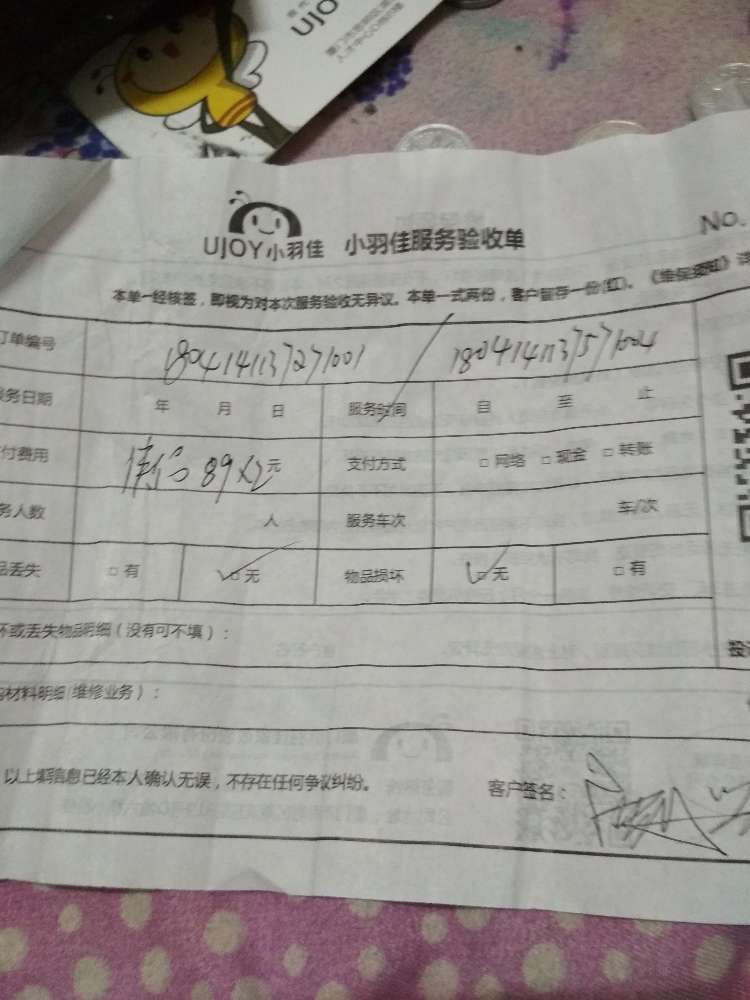 UJO
UJOY小羽佳 小羽佳服务验收单
No.
本单一经核签，即视为对本次服务验收无异议。本单一式两份，客户暂存一份(红)。《维保须知》详
订单编号 1804141137271001 / 1804141137571004
服务日期 年 月 日 服务时间 自 至 止
付费用 89×2元 支付方式 □网络 □现金 □转账
务人数 人 服务车次 车/次
品丢失 □有 □无 物品损坏 □无 □有
坏或丢失物品明细（没有可不填）：
材料明细(维修业务)：
以上填写信息已经本人确认无误，不存在任何争议纠纷。 客户签名：